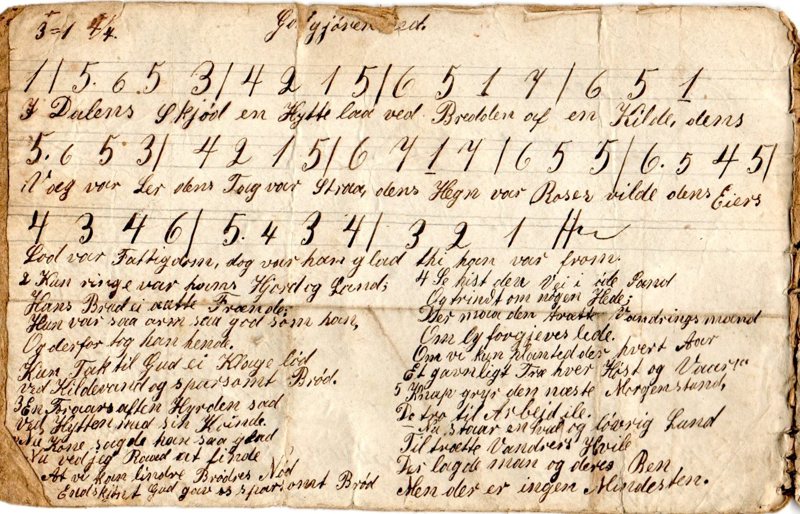 5=1 4/4.
1 | 5. 6 5 3 | 4 2 1 5 | 6 5 1 7 | 6 5 1
I Dalens Skjød en Hytte laa ved Bredden af en Kilde, dens
5. 6 5 3 | 4 2 1 5 | 6 7 1 7 | 6 5 5 | 6. 5 4 5 |
Væg var Ler dens Tag var Straa, dens Hegn var Roser vilde dens Eiers
4 3 4 6 | 5. 4 3 4 | 3 2 1
Lod var Fattigdom, dog var han glad thi han var from.
2 Kun ringe var hans Hjord og Land;
Hans Brød ei mætte Frænde;
Hun var saa arm saa god som han,
Og derfor tog han hende.
Kun Tak til Gud ei Klage lød
ved Kildevand og sparsomt Brød.
3 En Foraarsaften Hyrden sad
ved Hytten med sin Kvinde.
Nu Kone, sagde han saa glad
Nu ved jeg Raad at finde
At vi kan lindre Brødres Nød
Endskjønt Gud gav os sparsomt Brød
4 Se hist den Vei i øde Sand
Og trindt om nøgen Hede;
Der maa den trætte Vandringsmand
Om ly forgjeves lede.
Om vi kun planted der hvert Aar
Et gavnligt Træ hver Høst og Vaar
5 Knap gryr den næste Morgenstund,
De tro til Arbeid ile.
Nu staar en hvid og løvrig Lund
Til trætte Vandrers Hvile
Der lagde man og deres Ben
Men der er ingen Mindesten.